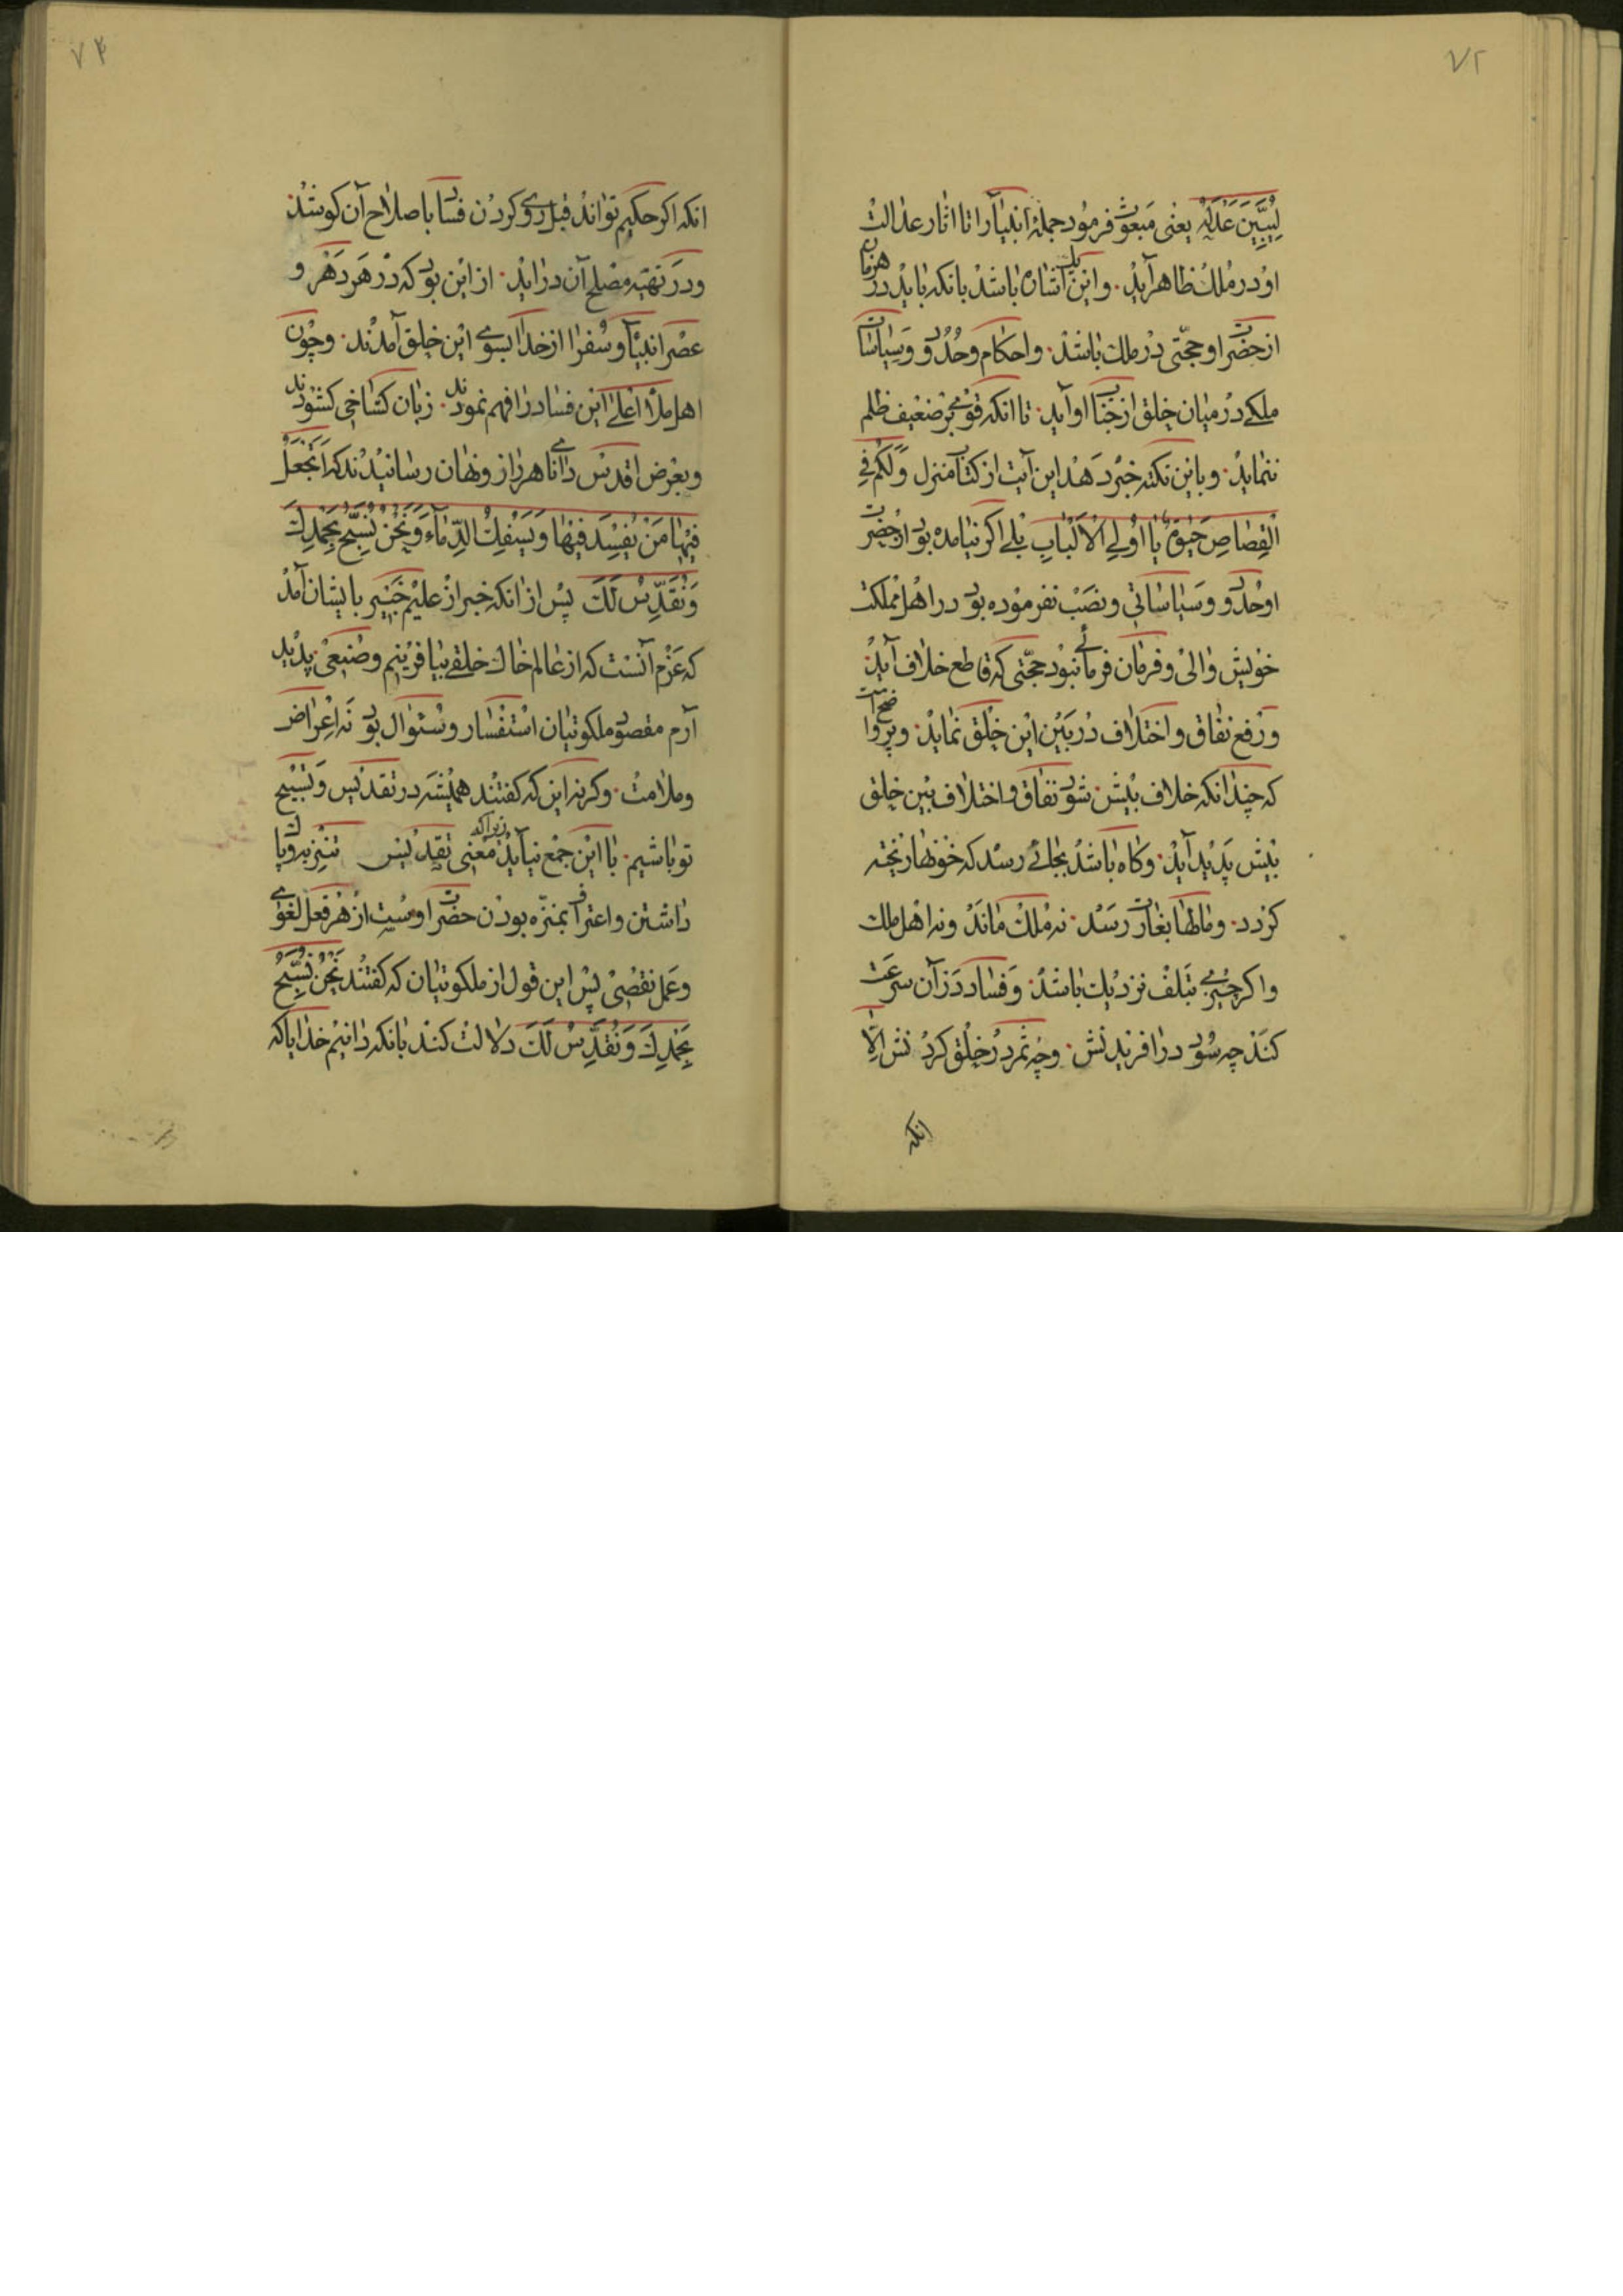 ٧٢
لِيُبَيِّنَ عَدْلَهُ یعنی مبعوث فرمود جملهٔ انبیآ را تا اثار عدالت
او در ملک ظاهر آید. و این باشد بانکه باید در هر زمان
از حضرت او حجّتی در ملک باشد. و احکام و حدود و سیاسات
ملکے در میان خلق از جناب او آید. تا انکه قوی بر ضعیف ظلم
ننماید. و باین نکته خبر دهد این آیت از کتاب منزل وَلَكُمْ فِي
الْقِصَاصِ حَيٰوةٌ يَا أُولِي الْأَلْبَابِ بلے اکر نیامده بود از حضرت
او حدود و سیاساتی و نصب نفرموده بود در اهل مملکت
خویش والی و فرمان فرمائے نبود حجّتی که قاطع خلاف آید
و رفع نفاق و اختلاف در بین این خلق نماید. و پر واضح است
که چندانکه خلاف بیش شود نفاق و اختلاف بین خلق
بیش پدید آید. و کاه باشد بجائے رسد که خونها ریخته
کردد. و مالها بغارت رسد. نه ملک ماند و نه اهل ملک
و اکر چیزے بتلف نزدیک باشد. و فساد در آن سرعت
کند چه سود در افریدنش. و چه ثمر در خلق کردنش الّا
انکه
٧٤
انکه اکر حکیم تواند قبل روی کردن فساد باصلاح آن کوشد
و در تهیّه مصلح آن در آید. از این بود که در هر دهر و
عصر انبیآ و سفرا از خدا بسوے این خلق آمدند. و چون
اهل ملأ اعلے این فساد را فهم نمودند. زبان کستاخی کشودند
و بعرض اقدس داناے هر راز و نهان رسانیدند که أَتَجْعَلُ
فِيهَا مَنْ يُفْسِدُ فِيهَا وَيَسْفِكُ الدِّمَآءَ وَنَحْنُ نُسَبِّحُ بِحَمْدِكَ
وَنُقَدِّسُ لَكَ پس از انکه خبر از علیم خبیر بایشان آمد
که عزم آنست که از عالم خاک خلقے بیافرینیم و صنیعی پدید
آرم مقصود ملکوتیان استفسار و سئوال بود نه اعراض
و ملامت. و کرنه این که کفتند همیشه در تقدیس و تسبیح
تو باشیم. با این جمع نیاید زیرا که معنی تقدیس تنزیه و پاک
داشتن و اعتراف بمنزّه بودن حضرت اوست از هر فعل لغوے
و عمل نقصی پس این قول از ملکوتیان که کفتند نَحْنُ نُسَبِّحُ
بِحَمْدِكَ وَنُقَدِّسُ لَكَ دلالت کند بانکه دانیم خدایا که